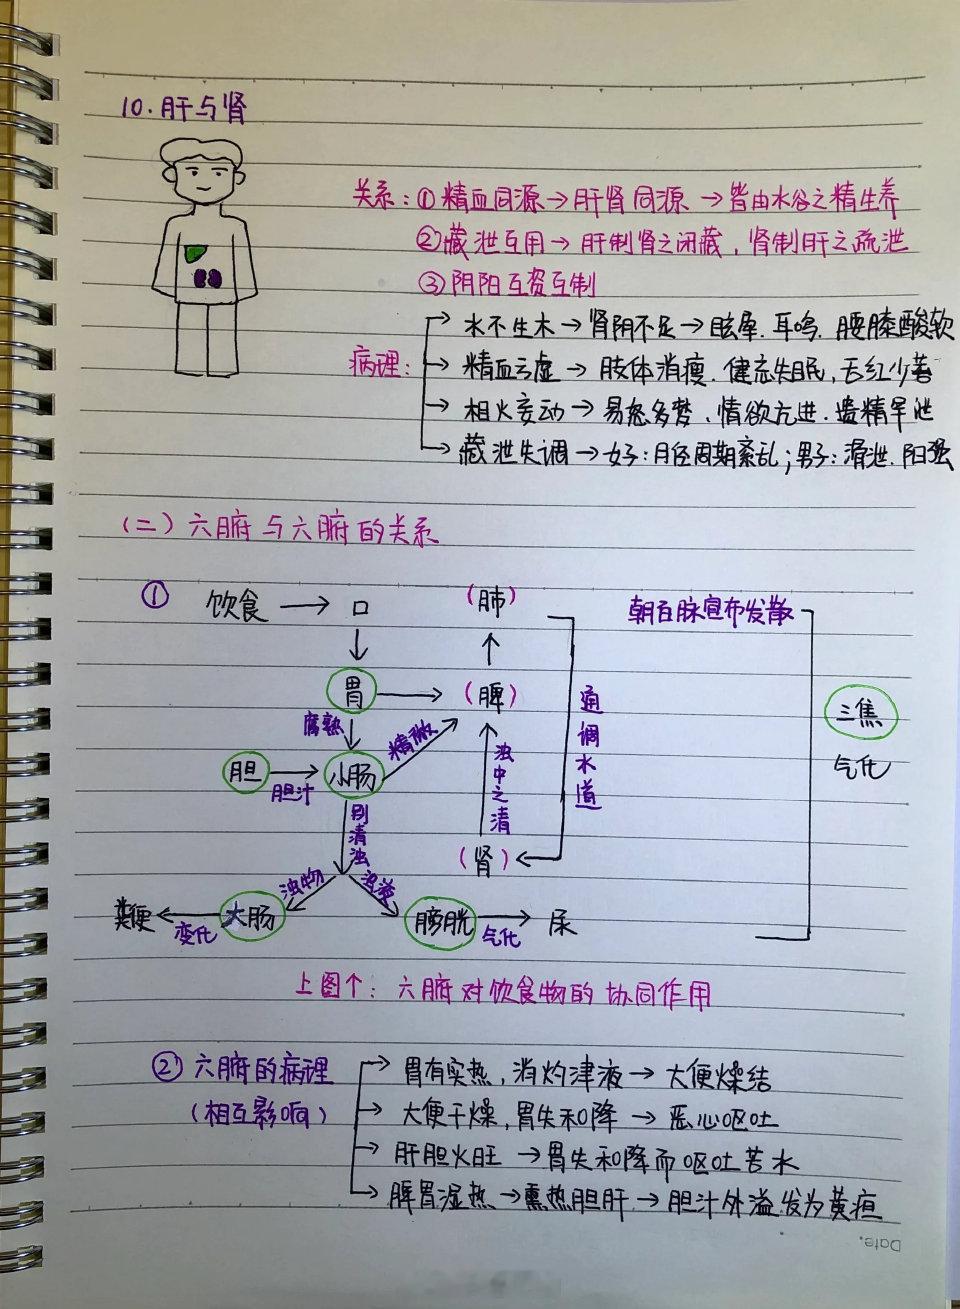 10.肝与肾
关系：①精血同源→肝肾同源→皆由水谷之精生养
②藏泄互用→肝制肾之闭藏，肾制肝之疏泄
③阴阳互资互制
病理：
水不生木→肾阴不足→眩晕.耳鸣.腰膝酸软
精血亏虚→肢体消瘦.健忘失眠,舌红少苔
相火妄动→易怒多梦.情欲亢进.遗精早泄
藏泄失调→女子：月经周期紊乱；男子：滑泄.阳强
（二）六腑与六腑的关系
① 饮食→口
（肺）
朝百脉宣布发散
胃→（脾）
通调水道
三焦
气化
腐熟
精微
胆→小肠
胆汁
浊中之清
别清浊
（肾）
浊物
浊液
粪便←大肠
变化
膀胱→尿
气化
上图个：六腑对饮食物的协同作用
②六腑的病理
（相互影响）
胃有实热,消灼津液→大便燥结
大便干燥,胃失和降→恶心呕吐
肝胆火旺→胃失和降而呕吐苦水
脾胃湿热→熏热胆肝→胆汁外溢.发为黄疸
Date.